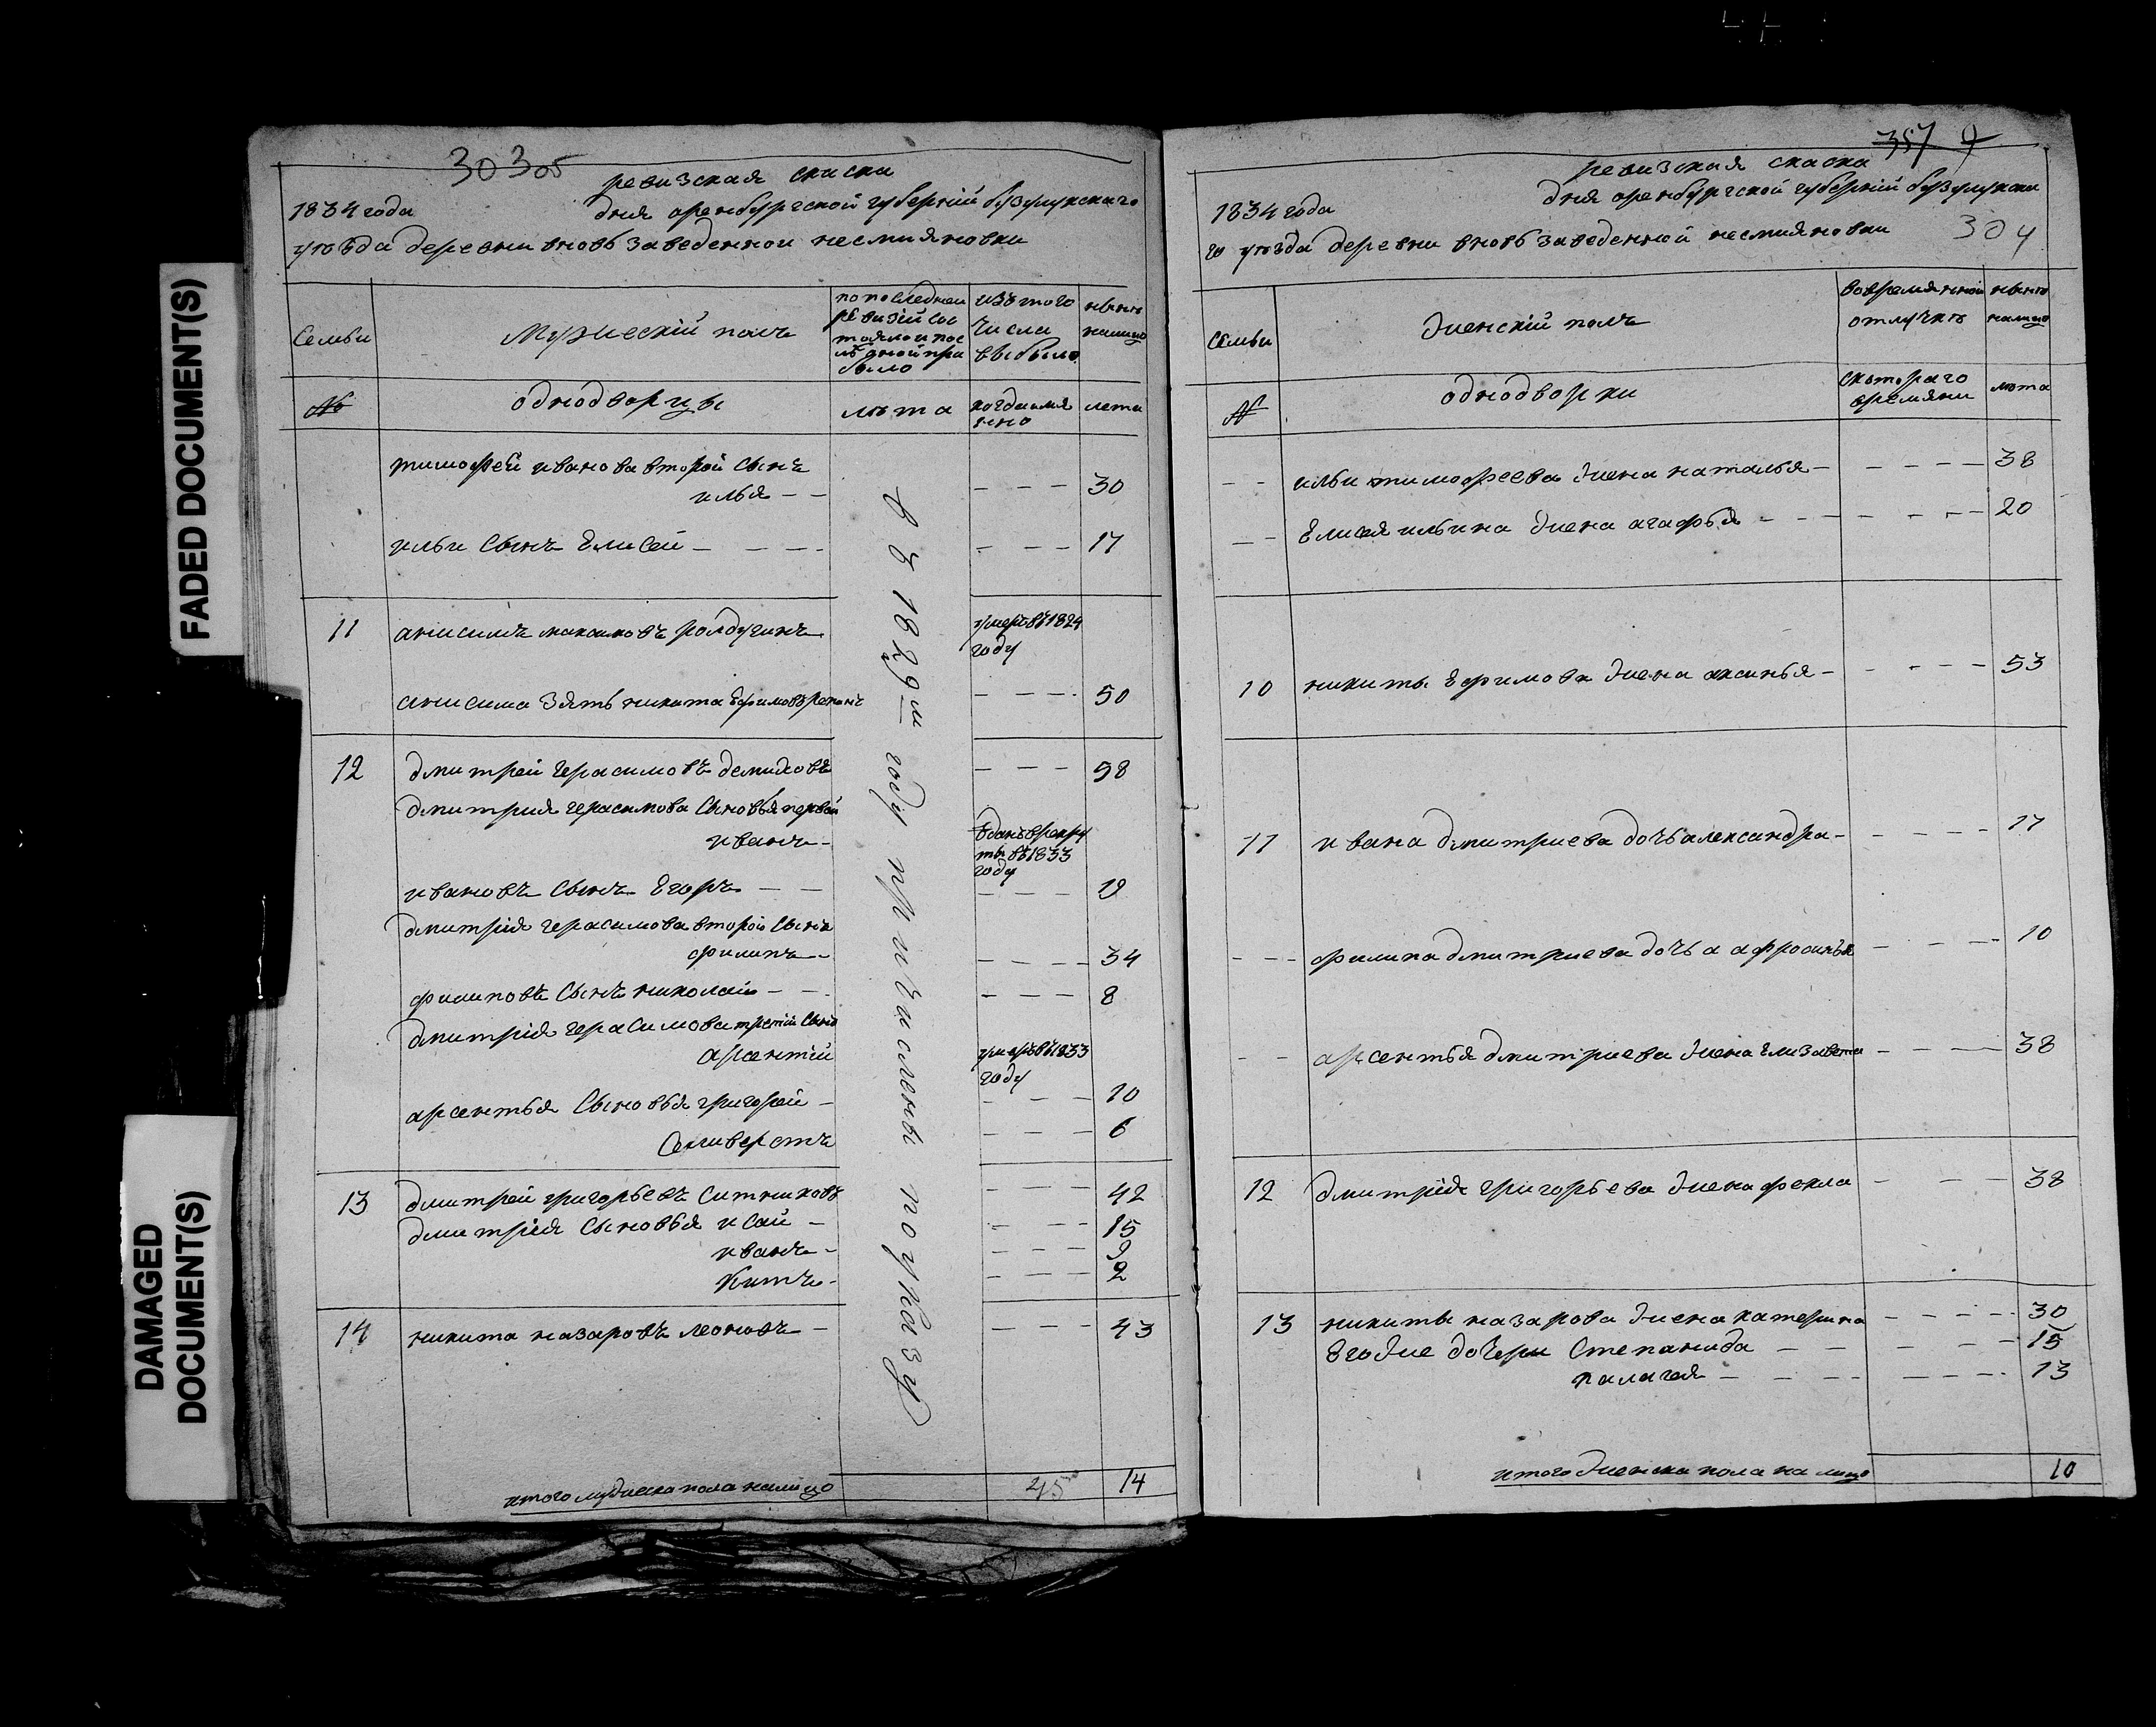 FADED DOCUMENT(S)
DAMAGED
DOCUMENT(S)
303 05
ревизская скаска
1834 года дня оренбургской губернїй бузулукскаго
уѣзда деревни вновь заведенной несмияновки
Семьи
Мужескій полъ
по последней
ревизїи сос
тояло и пос
лѣ оной при
было
изъ того
числа
выбыло
нынѣ
налицо
№
однодворцы
лѣта
когда имя
нно
лета
тимофей иванова второй сынъ
илья - - - - - 30
ильи сынъ Елисей - - - - - - 17
11 анисимъ максимовъ ролдугинъ умеръ в 1824
году
анисима зять никита Ефимовъ - - - 50
12 дмитрей герасимовъ демидовъ - - - 58
дмитрия герасимова сыновья первой
иванъ - отданъ в рекру
ты въ 1833
году
ивановъ сынъ Егоръ - - - - - 19
дмитрїя герасимова второй сынъ
филипъ - - - - - 34
филиповъ сынъ николай - - - - - 8
дмитрїя герасимова третїй сынъ
арсентїй умеръ въ 1833
году
арсентья сыновья григорей - - - - 10
Селиверстъ - - - 6
13 дмитрей григорьевъ ситниковъ - - - 42
дмитрїя сыновья исай - - - - 15
иванъ - - - - 9
Китъ - - - - 2
14 никита назаровъ леоновъ - - - - 43
въ 1829м году причислены по указу
итого мужеска пола налицо 45 14
357 9
ревизская скаска
1834 года дня оренбургской губернїй бузулукска
го уѣзда деревни вновь заведенной несмияновки 304
семьи
женскїй полъ
во временной
отлучкѣ
нынѣ
налицо
№
однодворки
с котораго
времяни
лѣта
- - ильи тимофеева жена наталья - - - - - 38
- - Елисея ильина жена агафья - - - - - - 20
10 никиты Ефимова жена аксинья - - - - - 53
11 ивана дмитриева дочь александра - - - - - 17
- - филипа дмитриева дочь аафросинья - - - 10
- - арсентья дмитриева жена Елизавета - - - 38
12 дмитрїя григорьева жена фекла - - - 38
13 никиты назарова жена катерина - - - - 30
Его же дочери Степанида - - - - - 15
палагея - - - - - - - - 13
итого женска пола на лицо 10